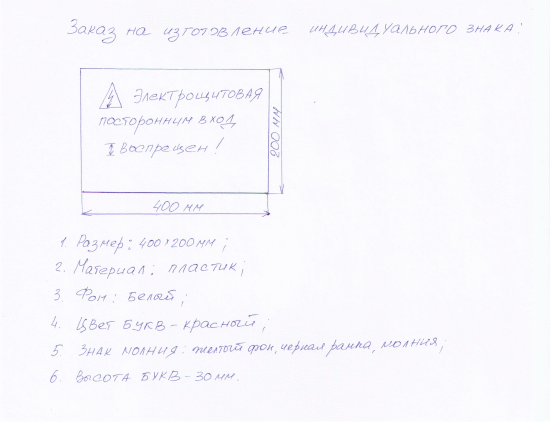 Заказ на изготовление индивидуального знака:
Электрощитовая
посторонним вход
воспрещен!
200 мм
400 мм
1. Размер: 400×200мм;
2. Материал: пластик;
3. Фон: белый;
4. Цвет букв - красный;
5. Знак молния: желтый фон, черная рамка, молния;
6. Высота букв - 30 мм.